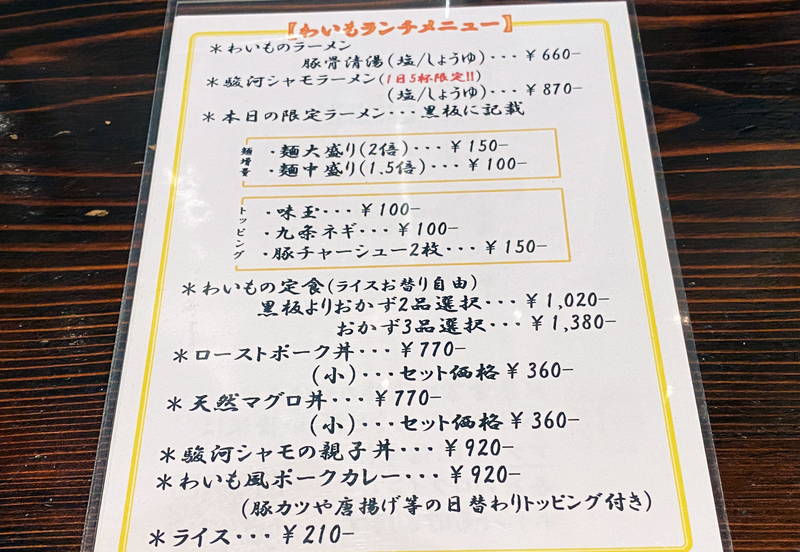 【わいもランチメニュー】
＊わいものラーメン
豚骨清湯(塩/しょうゆ)・・・￥660-
＊駿河シャモラーメン(1日5杯限定!!)
(塩/しょうゆ)・・・￥870-
＊本日の限定ラーメン・・・黒板に記載
麺増量
・麺大盛り(2倍)・・・￥150-
・麺中盛り(1.5倍)・・・￥100-
トッピング
・味玉・・・￥100-
・九条ネギ・・・￥100-
・豚チャーシュー2枚・・・￥150-
＊わいもの定食(ライスお替り自由)
黒板よりおかず2品選択・・・￥1,020-
おかず3品選択・・・￥1,380-
＊ローストポーク丼・・・￥770-
(小)・・・セット価格￥360-
＊天然マグロ丼・・・￥770-
(小)・・・セット価格￥360-
＊駿河シャモの親子丼・・・￥920-
＊わいも風ポークカレー・・・￥920-
(豚カツや唐揚げ等の日替わりトッピング付き)
＊ライス・・・￥210-